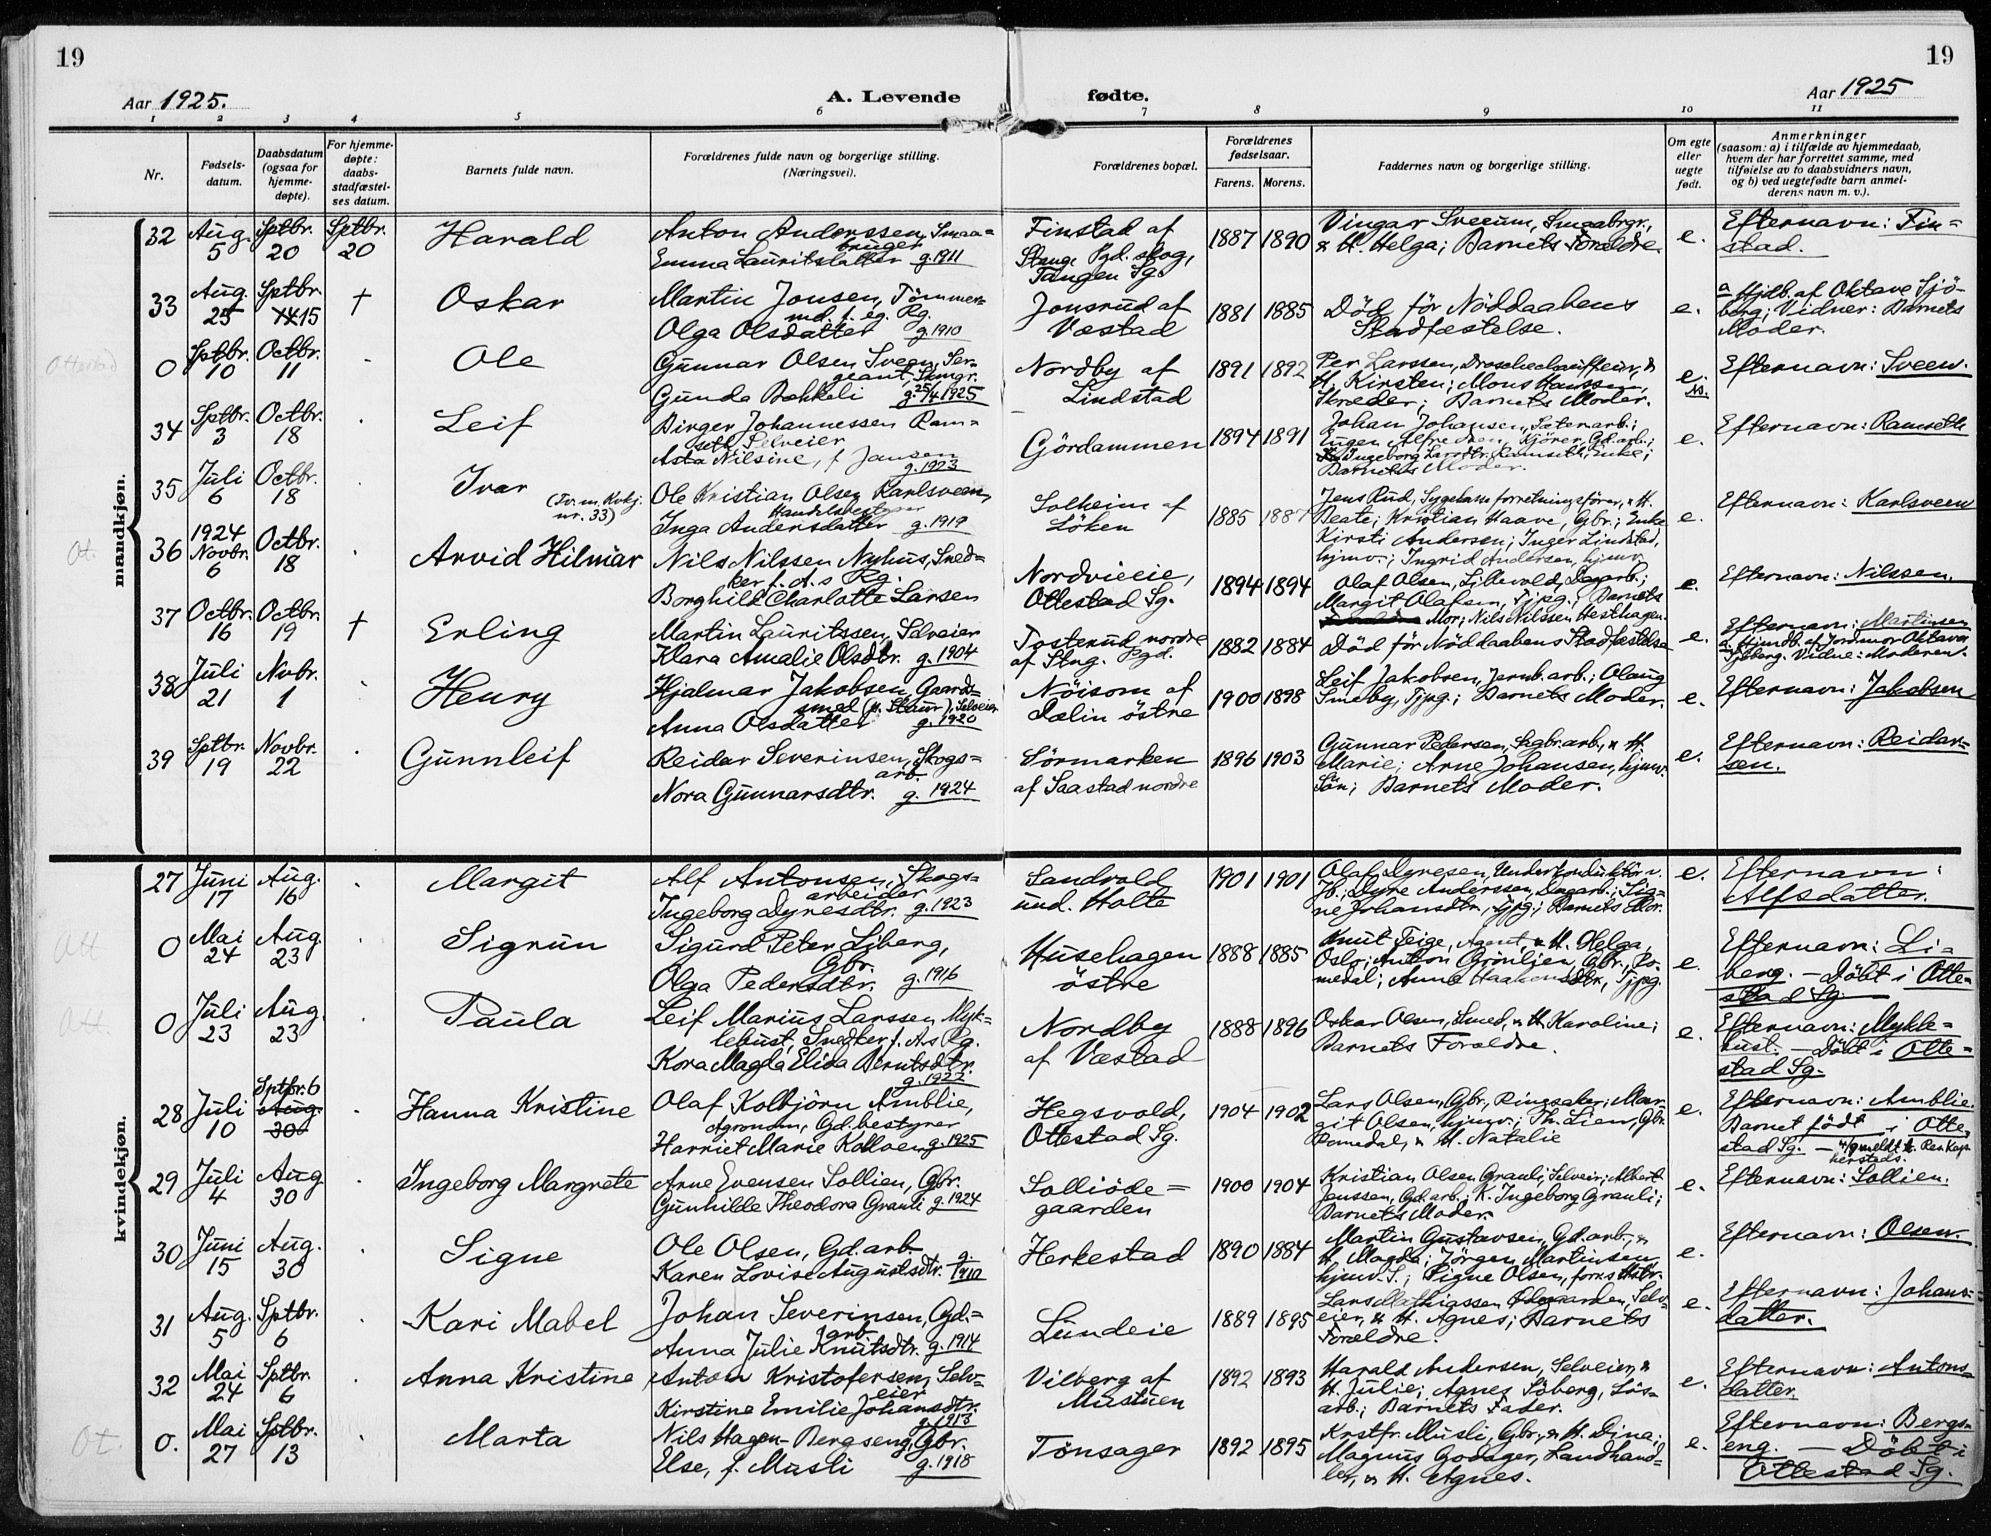 19
19
Aar 1925.
A. Levende
fødte.
Aar 1925
1 2 3 4 5 6 7 8 9 10 11
Nr.
Fødsels-
datum.
Daabsdatum
(ogsaa for
hjemme-
døpte).
For hjemme-
døpte:
daabs-
stadfæstel-
ses datum.
Barnets fulde navn.
Forældrenes fulde navn og borgerlige stilling.
(Næringsvei).
Forældrenes bopæl.
Forældrenes
fødselsaar.
Farens. Morens.
Faddernes navn og borgerlige stilling.
Om egte
eller
uegte
født.
Anmerkninger
(saasom: a) i tilfælde av hjemmedaab,
hvem der har forrettet samme, med
tilføielse av to daabsvidners navn,
og b) ved uegtefødte barn anmel-
derens navn m. v.).
mandkjøn.
32
Aug.
5
Sptbr.
20
Sptbr.
20
Harald
Anton Anderssen, Smaa=
bruger
Emma Lauritsdatter g. 1911
Finstad af
Stang. Pgd. skog,
Tangen Sg.
1887 1890
Vingar Sveeum, Smaabrgr.,
& H. Helga; Barnets Forældre
e.
Efternavn: Fin=
stad.
33
Aug.
25
Sptbr.
14 15
†
Oskar
Martin Jonsen, Tömmer=
md. f. eg. Rg.
Olga Olsdatter g. 1910
Jonsrud af
Væstad
1881 1885
Död för Nöddaabens
Stadfæstelse.
e.
a Hjdb. af Oktave Sjö=
berg; Vidner: Barnets
Moder.
Ottestad
0
Sptbr.
10
Octbr.
11
Ole
Gunnar Olsen Sveen, Ser=
geant, Skmgr.
Gunda Bækkeli g. 25/4 1925
Nordby af
Lindstad
1891 1892
Per Larssen, Droschechauffeur, &
H. Kirsten; Mons Hanssen,
Skræder; Barnets Moder.
e.
Ns.
Efternavn: Sveen.
34
Sptbr.
3
Octbr.
18
Leif
Birger Johannessen Ram=
seth Selveier
Asta Nilsine, f Jansen
g. 1923
Gördammen
1894 1891
Johan Johansen, Sæterarb.;
Eugen Alfredsen, Kjörer, Gd. arb.;
Ingeborg Larsdtr. Ramseth, Enke;
Barnets Moder.
e.
Efternavn: Ramseth
35
Juli
6
Octbr.
18
Ivar
(Tv. m. Kvkj.
nr. 33)
Ole Kristian Olsen Karlsveen,
Handelsbestyrer
Inga Andersdatter g. 1919
Solheim af
Löken
1885 1887
Jens Rud, Sygekasseforretningsförer, & H.
Beate; Kristian Haave, Gbr.; Enke
Kirsti Andersen; Inger Lindstad,
hjmv.; Ingrid Andersen, hjmv.
e.
Efternavn: Karlsveen
Ot.
36
1924
Novbr.
6
Octbr.
18
Arvid Hilmar
Nils Nilssen Nyhus, Sned=
ker f. A. s Rg.
Borghild Charlotte Larsen
Nordvieeie,
Ottestad Sg.
1894 1894
Olaf Olsen, Lillevold, Dagarb.;
Margit Olafsen, Tjpg.; Barnets
Mor; Nils Nilssen Hesthagen.
e.
Efternavn: Nilssen.
37
Octbr.
16
Octbr.
19
†
Erling
Martin Lauritssen, Selveier
Klara Amalie Olsdtr. g. 1904
Tosterud nordre
af Stng. Pgd.
1882 1884
Död för Nöddaabens Stadfæstelse
e.
Efternavn: Martinsen
a. Hjmdb. af Jordmor Oktave
Sjöberg. Vidne: Moderen.
38
Juli
21
Nvbr.
1
Henry
Hjalmar Jakobsen, Gaards=
smed (p. Staur), Selveier
Anna Olsdatter g. 1920
Nöisom af
Dælin östre
1900 1898
Leif Jakobsen, Jernb. arb.; Olaug
Smeby, Tjpg.; Barnets Moder.
e.
Efternavn: Jakobsen
39
Sptbr.
19
Novbr.
22
Gunnleif
Reidar Severinsen, Skogs=
arb.
Nora Gunnarsdtr. g. 1924
Sörmarken
af Saastad nordre
1896 1903
Gunnar Pedersen, Sagbr.arb., & H.
Marie; Arne Johansen, hjmv.
Sön; Barnets Moder.
e.
Efternavn: Reidar=
sen.
kvindekjøn.
27
Juni
17
Aug.
16
Margit
Alf Antonsen, Skogs=
arbeider
Ingeborg Dyresdtr. g. 1923
Sandvold
und. Holte
1901 1901
Olaf Dyresen, Underkonduktör v.
Jb.; Dyre Anderssen, Dagarb.; Sig=
ne Johansdtr., Tjpg.; Barnets Mor.
e.
Efternavn:
Alfsdatter.
Ott
0
Mai
24
Aug.
23
Sigrun
Sigurd Peter Liberg,
Gbr.
Olga Pedersdtr. g. 1916
Husehagen
östre
1888 1885
Knut Teige, Agent, & H. Helga,
Oslo; Anton Grönlien, Gbr., Ro=
medal; Anne Haakonsdtr., Tjpg.
e.
Efternavn: Li=
berg. – Döbt i Otte=
stad Sg.
Ott.
0
Juli
23
Aug.
23
Paula
Leif Marius Larssen Myk=
lebust, Snedker f. As Rg.
Kora Magda Elida Berntsdtr.
g. 1922
Nordby
af Væstad
1888 1896
Oskar Olsen, Smed, & H. Karoline;
Barnets Forældre.
e.
Efternavn: Mykle=
bust. – Döbt i Otte=
stad Sg.
28
Juli
10
Sptbr. 6
Aug.
30
Hanna Kristine
Olaf Kolbjörn Amblie,
Agronom, Gd. bestyrer
Harriet Marie Kolloen g. 1925
Hegsvold,
Ottestad Sg.
1904 1902
Lars Olsen, Gbr., Ringsaker; Mar=
git Olsen, hjmv.; Th. Lien, Gbr.
Romedal, & H. Natalie
e.
Efternavn: Amblie.
Barnet födt i Otte=
stad Sg. – meldt
29
Juli
4
Aug
30
Ingeborg Margrete
Arne Evensen Sollien, Gbr.
Gunhilde Theodora Granli g. 1924
Solliöde=
gaarden
1900 1904
Kristian Olsen Granli, Selveir; Albert
Janssen, Gd. arb.; K. Ingeborg Granli;
Barnets Moder.
e.
Efternavn: Sollien.
30
Juni
15
Aug.
30
Signe
Ole Olsen, Gd. arb
Karen Lovise Augustsdtr. g. 1910
Herkestad
1890 1884
Martin Gustavsen, Gd. arb., &
H. Magda; Jörgen Martinsen
hjmv. S.; Signe Olsen, forns Hsbr.
e.
Efternavn: Olsen.
31
Aug.
5
Sptbr.
6
Kari Mabel
Johan Severinsen, Gd=
arb
Anna Julie Knutsdtr. g. 1914
Lundeie
1889 1895
Lars Mathiassen Ödegaarden, Selv=
eier, & H. Agnes; Barnets
Forældre.
e.
Efternavn: Johans=
datter.
32
Mai
24
Sptbr.
6
Anna Kristine
Anton Kristofersen, Selv=
eier
Kirstine Emilie Johansdtr.
g. 1913
Vilberg af
Mustuen
1892 1893
Harald Andersen, Selveier, &
H. Julie; Agnes Söberg, Lös=
arb.; Barnets Fader.
e.
Efternavn: Antons=
datter.
Ot.
0.
Mai
27
Sptbr.
13
Marta
Nils Hagen Bergseng, Gbr.
Else, f. Musli g. 1918
Tønsager
1892 1895
Krstfr. Musli, Gbr., & H. Dina;
Magnus Godager, Landhand=
ler, & H. Agnes.
e.
Efternavn: Bergs=
eng. – Döbt i
Ottestad Sg.